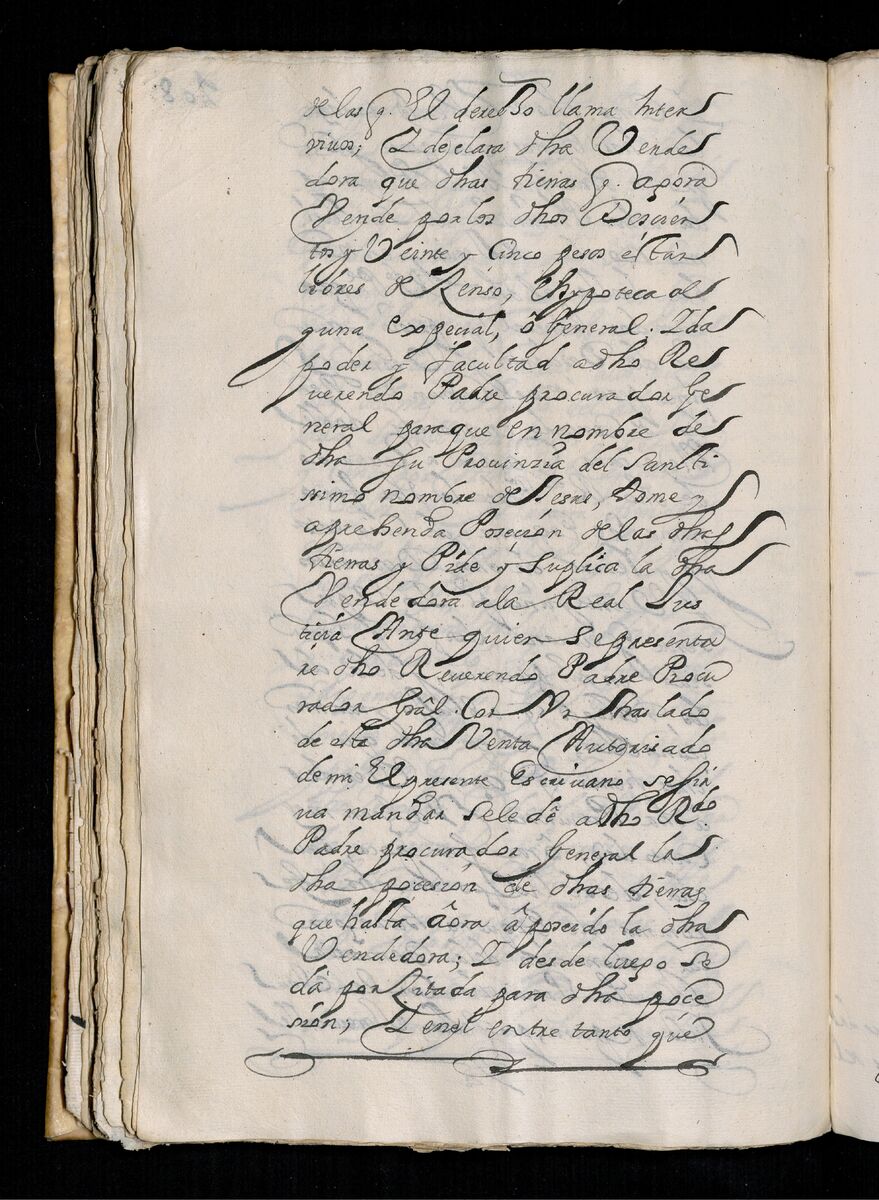 de las q. El derecho llama Inter
viuos; Y declara dha Vende
dora que dhas tierras q. aora
Vende por los dhos Doscien
tos y Veinte y Cinco pesos éstàn
liòres de Renso, Ehypoteca al
guna expecial, ô General. Yda
poder y facultad a dho Re
uerendo Padre procurador Ge
neral para que en nombre de
dha su Prouinzia del Sancti
simo nombre de Jesus, tome y
aprehenda Posecion de las dhas
tierras y Pide y suplica la dha
Vendedora ala Real Jus
ticia Ante quien se presenta
re dho Reuerendo Padre Procu
rador Grâl. Con Vn thraslado
de esta dha Venta Authorisado
de mi El presente Escriuano se sir
ua mandar se le dê a dho R.do
Padre procurador General la
dha pocesión de dhas tierras
que hasta âora â poseido la dha
Vendedora; Y desde luego se
dá por Zitada para dha poce
sión; Y enel entre tanto que